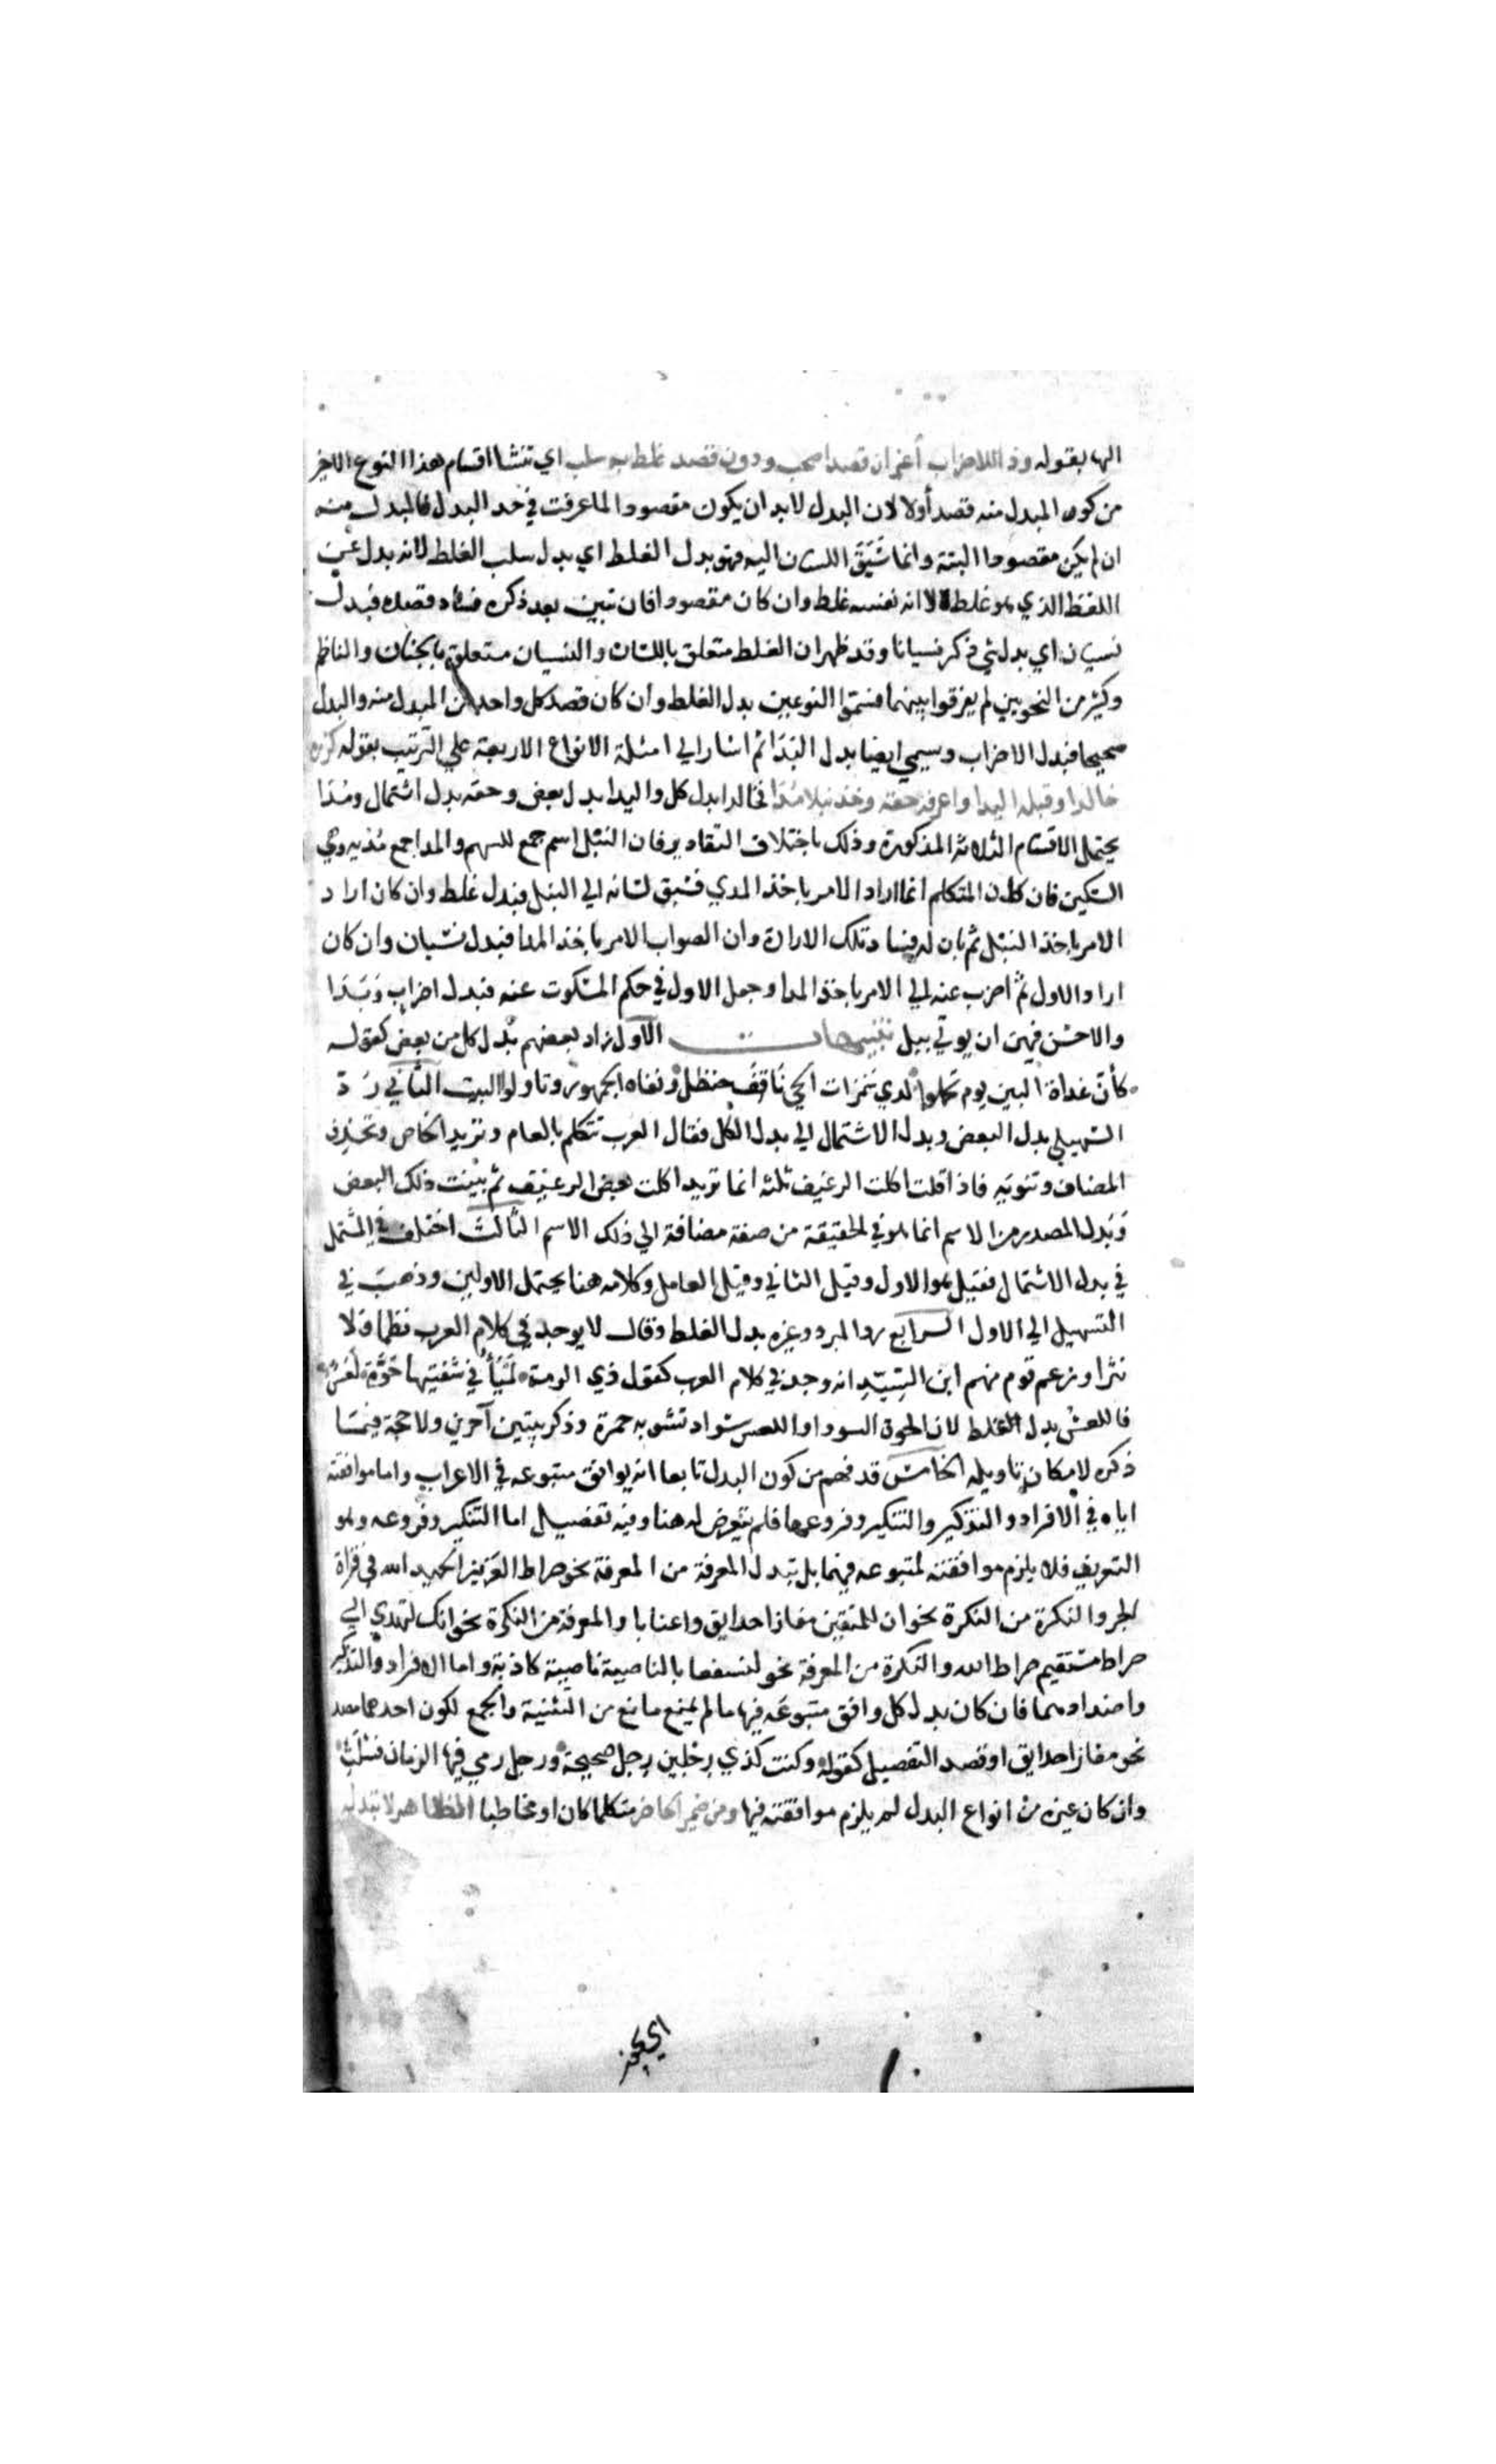 اليها بقوله وذا للاضراب أعز ان قصدا صحب ودون قصد غلط به سلب اي تنشا اقسام هذا النوع الاخير
من كون المبدل منه قصد أولا لان البدل لابد ان يكون مقصودا لما عرفت في حد البدل فالمبدل منه
ان لم يكن مقصودا البتة وانما سَبَقَ اللسان اليه فهو بدل الغلط اي بدل سلب الغلط لانه بدل عن
اللفظ الذي هو غلط لا انه نفسه غلط وان كان مقصودا فان تبين بعد ذكره فساد قصده فبدل
نسيان اي بدل شي ذكر نسيانا وقد ظهر ان الغلط متعلق باللسان والنسيان متعلق بالجنان والناظم
وكثير من النحويين لم يفرقوا بينهما فسموا النوعين بدل الغلط وان كان قصد كل واحد من المبدل منه والبدل
صحيحا فبدل الاضراب وسمي ايضا بدل البَدَا ثم اشار الي امثلة الانواع الاربعة علي الترتيب بقوله كزره
خالدا وقبله اليدا واعرفه حقه وخذ نبلا مُدَا فخالدا بدل كل واليدا بدل بعض وحقه بدل اشتمال ومُدَا
يحتمل الاقسام الثلاثة المذكورة وذلك باختلاف التقادير فان النبْل اسم جمع للسهم والمدا جمع مُدْية وهي
السكين فان كان المتكلم انما اراد الامر باخذ المدي فسبق لسانه الي النبل فبدل غلط وان كان اراد
الامر باخذ النبْل ثم بان له فساد تلك الارادة وان الصواب الامر باخذ المدا فبدل نسيان وان كان
اراد الاول ثم اضرب عنه الي الامر باخذ المدا وجعل الاول في حكم المسكوت عنه فبدل اضراب وبَدَا
والاحسن فيهن ان يوتي ببل تنبيهات الاول زاد بعضهم بَدل كل من بعض كقوله
كأنّ غداة البين يوم تحملوا لدي سَمُرات الحي نَاقِفُ حنظل ونفاه الجمهور وتاولوا البيت الثاني رَدّ
السهيلي بدل البعض وبدل الاشتمال الي بدل الكل فقال العرب تتكلم بالعام وتريد الخاص وتحذف
المضاف وتنويه فاذا قلت اكلت الرغيف ثلثه انما تريد اكلت بعض الرغيف ثم بيّنت ذلك البعض
وبَدل المصدر من الاسم انما هو في الحقيقة من صفة مضافة الي ذلك الاسم الثالث اختلف في المشتمل
في بدل الاشتمال فقيل هو الاول وقيل الثاني وقيل العامل وكلامه هنا يحتمل الاولين وذهب في
التسهيل الي الاول الرابع رد المبرد وغيره بدل الغلط وقال لا يوجد في كلام العرب نظما ولا
نثرا وزعم قوم منهم ابن السِّيدِ انه وجد في كلام العرب كقول ذي الرمة لَمْيَأُ في شفتيها حُوَّة لَعَسٌ
فاللعسُ بدل الغلط لان الحوة السواد واللعس سَواد تشوبه حمرة وذكر بيتين آخرين ولا حجة فيما
ذكره لامكان تاويله الخامس قد فهم من كون البدل تابعا انه يوافق متبوعه في الاعراب واما موافقته
اياه في الافراد والتذكير والتنكير وفروعها فلم يتعرض له هنا وفيه تفصيل اما التنكير وفروعه وهو
التعريف فلا يلزم موافقته لمتبوعه فيهما بل تبدل المعرفة من المعرفة نحو صراط العزيز الحميد الله في قراة
الجر والنكرة من النكرة نحو ان للمتقين مفازا حدايق واعنابا والمعرفة من النكرة نحو انك لتهدي الي
صراط مستقيم صراط الله والنكرة من المعرفة نحو لنسفعا بالناصية ناصية كاذبة واما الافراد والتذكير
واضدادهما فان كان بدل كل وافق متبوعَه فيها ما لم يمنع مانع من التثنية والجمع لكون احدهما مصد
نحو مفازا حدايق او قصد التفصيل كقوله وكنت كذي رِجْلين رِجل صحيحة ورجل رمي فيها الزمان فشلتِ
وان كان غيره من انواع البدل لم يلزم موافقته فيها ومن ضمير الحاضر متكلما كان او مخاطبا الظاهر لا تبدله